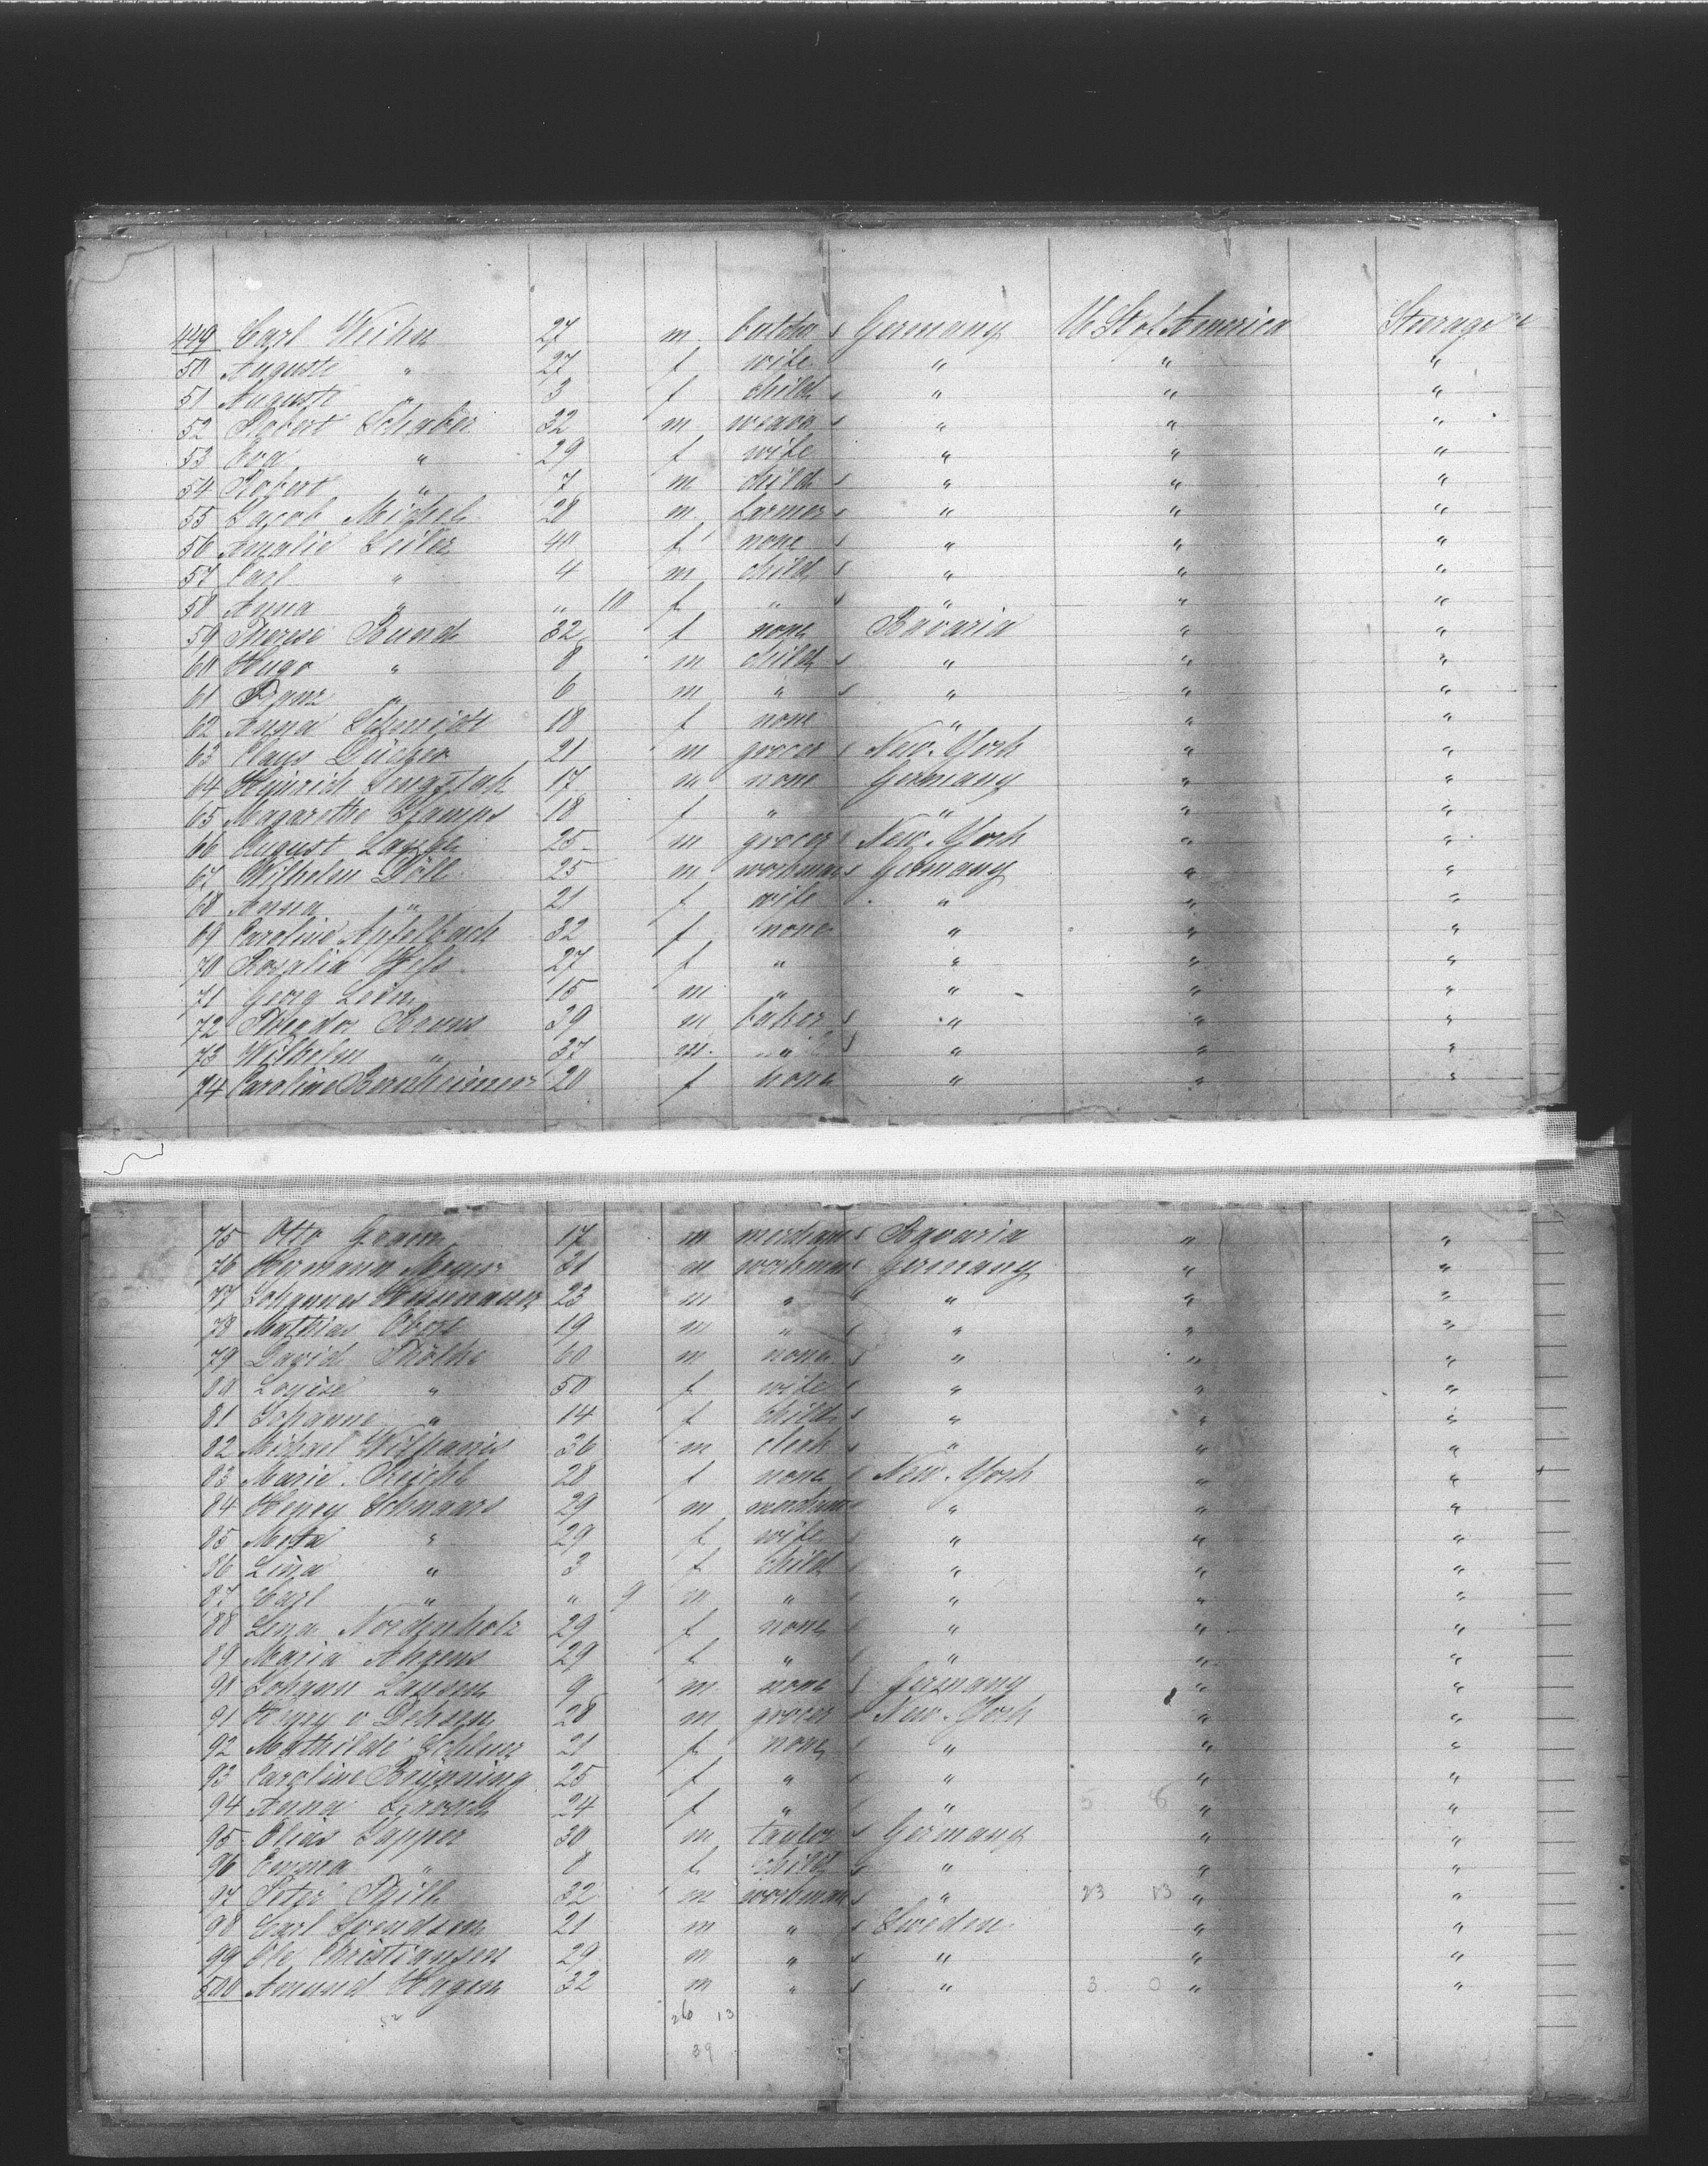 449 Carl Weihn 27 m butcher s Germany U St of America Steerage
50 Auguste " 27 f wife " " "
51 Auguste " 3 f child s " " "
52 Robert Schaber 32 m weaver s " " "
53 Eva " 29 f wife " " "
54 Robert " 7 m child s " " "
55 Jacob Michel 28 m farmer s " " "
56 Amalie Seiler 40 f none s " " "
57 Carl " 4 m child s " " "
58 Anna " " 10 f " s " " "
59 Therese Bund 32 f none Bavaria " "
60 Hugo " 8 m child s " " "
61 Franz " 6 m " s " " "
62 Anna Schmidt 18 f none " " "
63 Claus Bücher 21 m grocer s New-York " "
64 Heinrich Lengstak 17 m none Germany " "
65 Magarethe Stamps 18 f " " " "
66 August 25 m grocer s New-York " "
67 Wilhelm Döll 25 m workman s Germany " "
68 Anna " 21 f wife " " "
69 Caroline Apfelbach 32 f none " " "
70 Rosalia Hess 27 f " " " "
71 Georg 15 m " " " "
72 Theodor Bruns 39 m baker s " " "
73 Wilhelm " 37 m " s " " "
74 Caroline Bernheimer 20 f none " " "
75 Otto 17 m merchant s Bavaria " "
76 Hermann Meyer 31 m workman s Germany " "
77 Johannes 23 m " " " "
78 Mathias 19 m " s " " "
79 David Nöthe 60 m none s " " "
80 Louise " 50 f wife s " " "
81 Johanne " 14 f child s " " "
82 Michael 36 m clerk s " " "
83 Marie Reichl 28 f none s New-York " "
84 Henry Schnaars 29 m merchant s " " "
85 Meta " 29 f wife s " " "
86 Lina " 3 f child s " " "
87 Carl " " 9 m " s " " "
88 Lena Nordenholz 29 f none s " " "
89 Maria Ahrens 29 f " s " " "
90 Johann Lausen 9 m none s Germany " "
91 Henry v Dehsen 28 m grocer s New-York " "
92 Mathilde 21 f none s " " "
93 Caroline Brünning 25 f " s " " "
94 Anna 24 f " s " 5 6 " "
95 Elias Lapper 30 m tailor s Germany " "
96 Emma " 8 f child s " " "
97 Peter 32 m workman s " 23 13 " "
98 Carl Svendsen 21 m " s Sweden " "
99 Ole Christiansen 29 m " s " " "
500 Amund Hagen 32 m " s " 3 0 " "
52 26 13
39